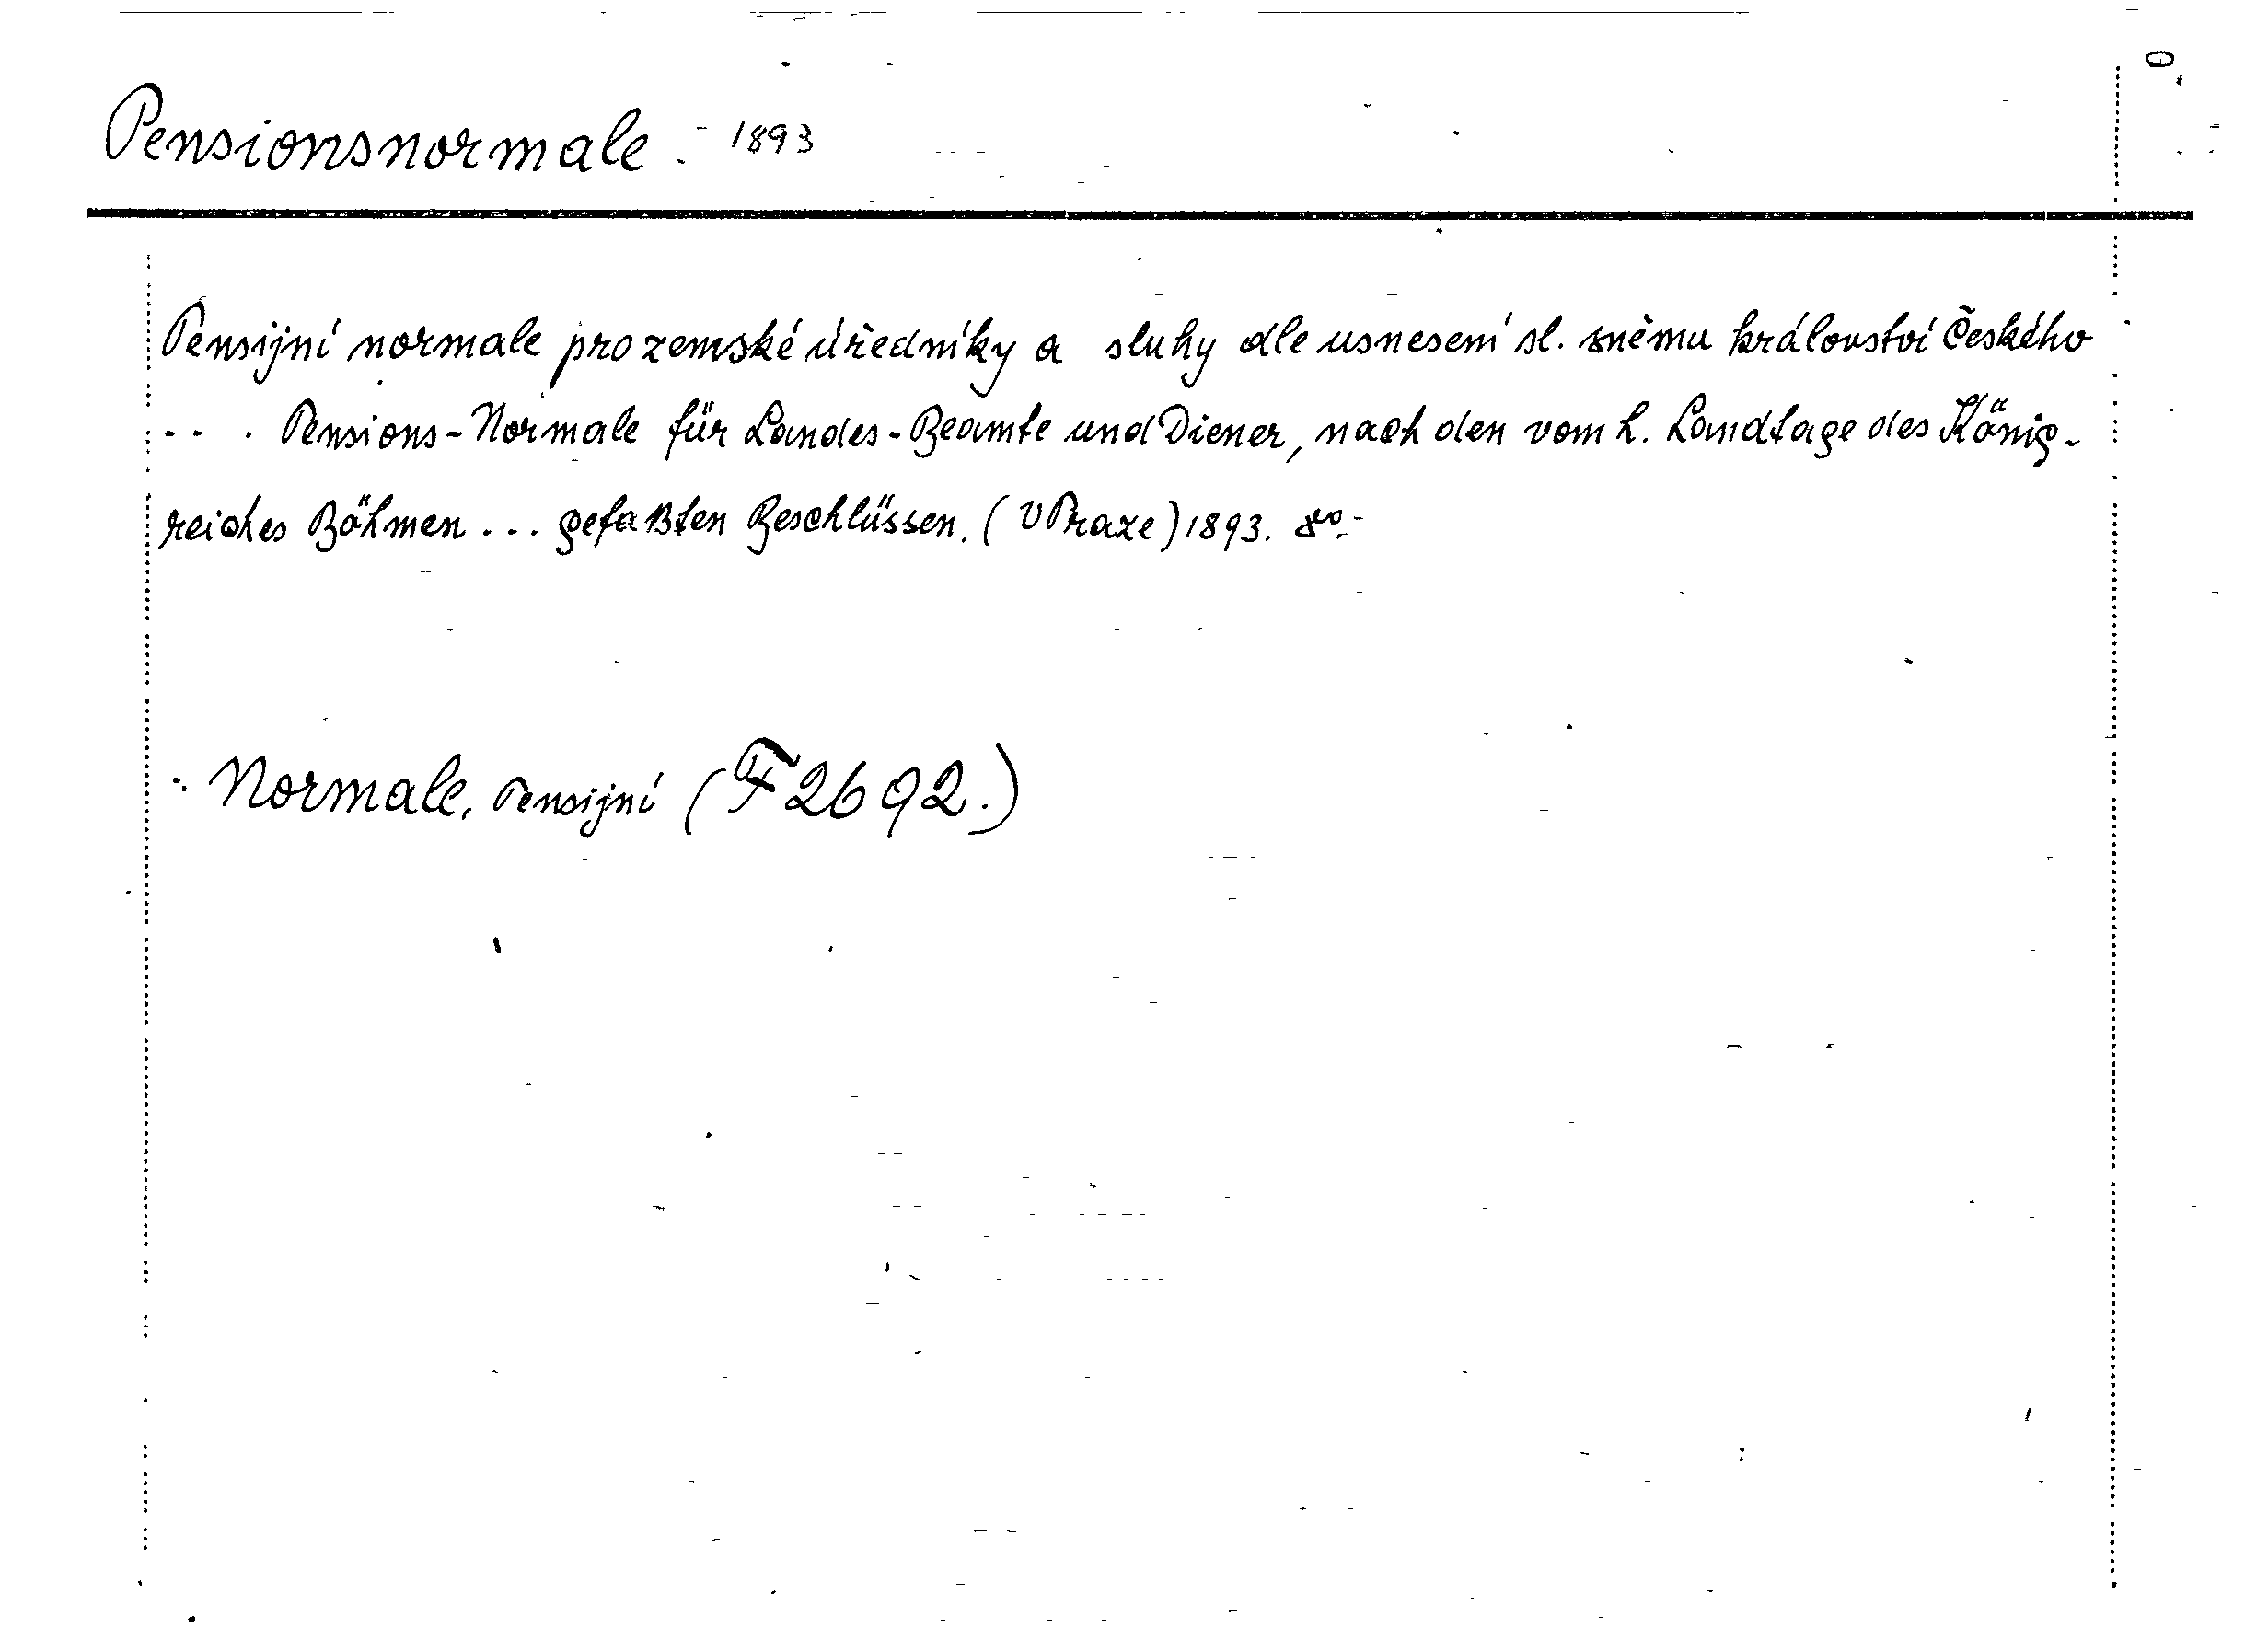 Pensionsnormale. - 1893
Pensijní normale pro zemské úředníky a sluhy dle usnesení sl. sněmu království Českého
... Pensions-Normale für Landes-Beamte und Diener, nach den vom h. Landtage des König-
reiches Böhmen ... gefaßten Beschlüssen. (V Praze) 1893. 8º.-
: Normale, Pensijní (F 2692.)